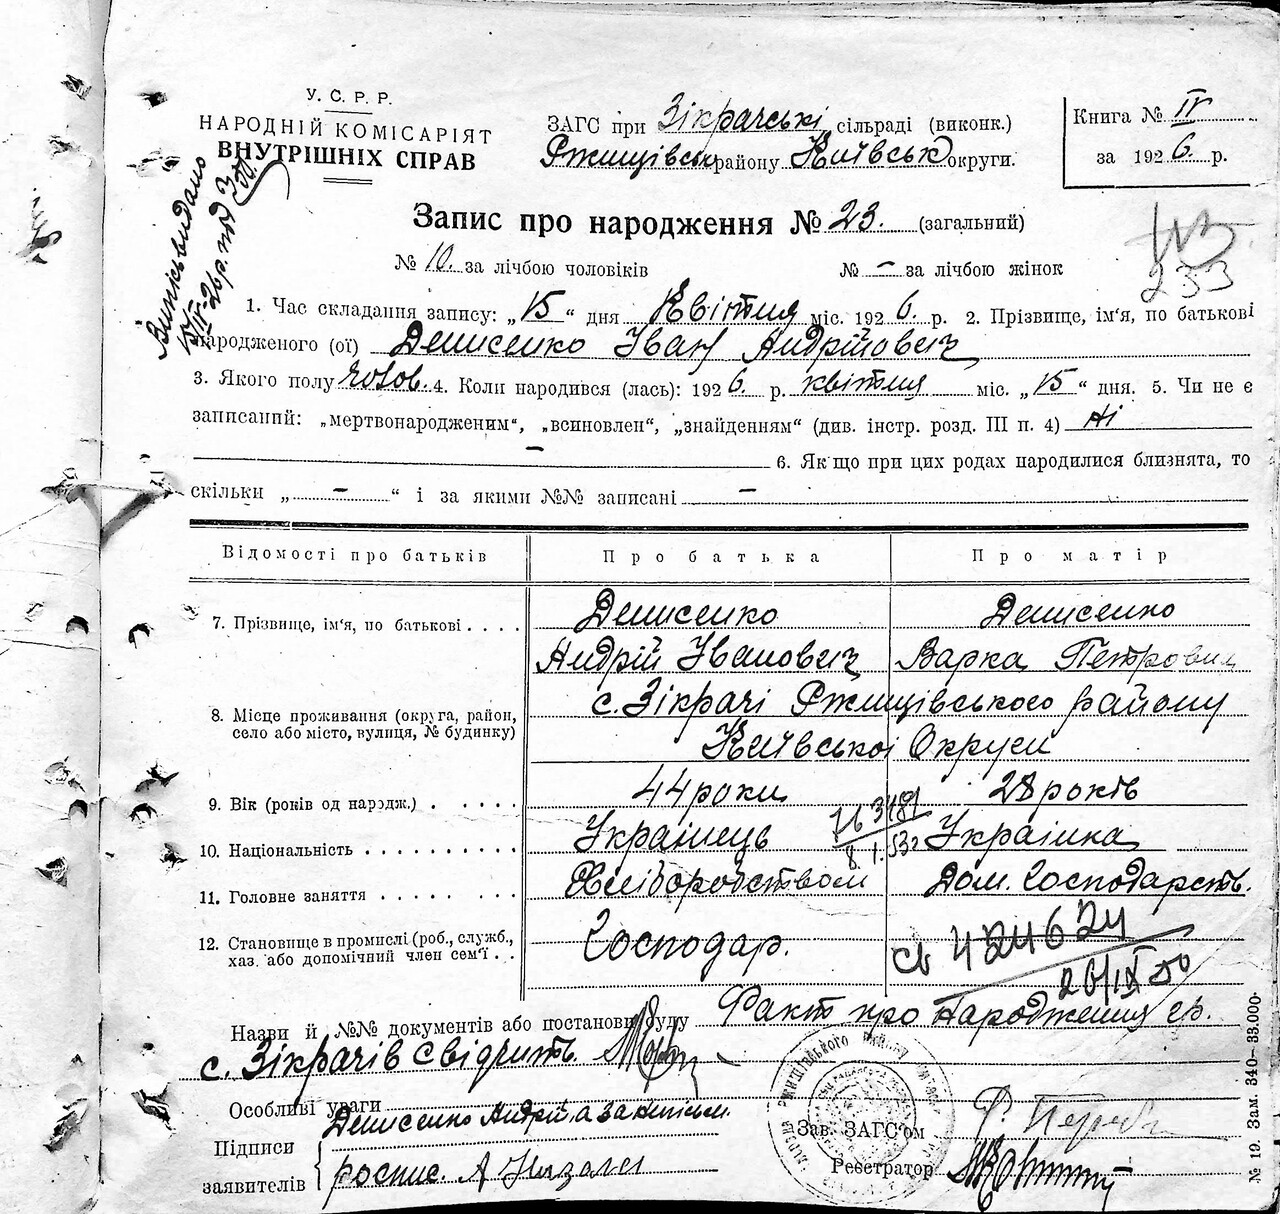 У. С. Р. Р.
НАРОДНІЙ КОМІСАРІЯТ
ВНУТРІШНІХ СПРАВ
ЗАГС при Зікрачські сільраді (виконк.)
Ржищівськ району Київськ округи.
Книга № IV
за 1926 р.
Запис про народження № 23. (загальний)
№ 10. за лічбою чоловіків № – за лічбою жінок
233
Випісь видано
1. Час складання запису: „15“ дня Квітня міс. 1926. р. 2. Прізвище, ім'я, по батькові
народженого (ої) Денисенко Іван Андрійович
3. Якого полу 4. Коли народився (лась): 1926. р. квітня міс. „15“ дня. 5. Чи не є
записаний: „мертвонародженим“, „всиновлен“, „знайденням“ (див. інстр. розд. III п. 4) Ні
– 6. Якщо при цих родах народилися близнята, то
скільки „ – “ і за якими №№ записані –
Відомості про батьків Про батька Про матір
7. Прізвище, ім'я, по батькові . . . . Денисенко Денисенко
Андрій Іванович Варка Петровна
8. Місце проживання (округа, район, село або місто, вулиця, № будинку) с. Зікрачі Ржищівського району
Київської Округи
9. Вік (років од народж.) . . . . . 44 роки 28 років
10. Національність . . . . . . . . . . Українець Українка
11. Головне заняття . . . . . . . . Хліборобством Дом. Господарств.
12. Становище в промислі (роб., служб., хаз. або допоміčний член сем'ї . . Господар.
св 424624
26/IX 50
Назви й №№ документів або постанови суду Факт про народження гр.
с. Зікрачів свідчить.
Особливі уваги
Підписи
заявителів
Денисенко Андрій а за
роспис.
Зав. ЗАГС'ом
Реєстратор
№ 19. Зам. 340—33.000.